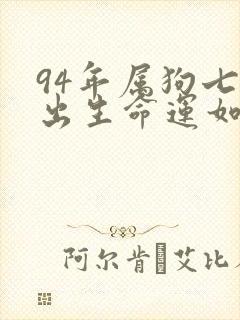 94年属狗七
出生命运如
阿尔肯·艾比